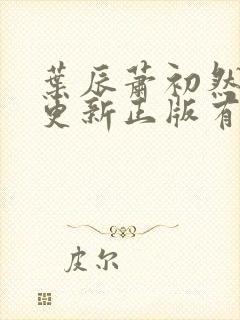 葉辰蕭初然
更新正版有
皮尔